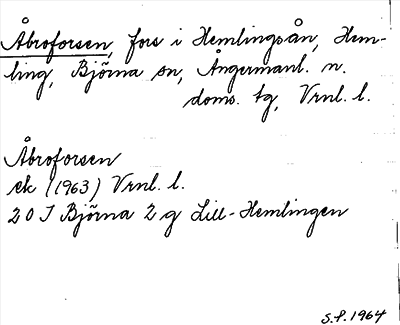 Åbroforsen, fors i Hemlingsån, Hem-
ling, Björna sn, Ångermanl. n.
doms. tg, Vrnl. l.
Åbroforsen
ek (1963) Vrnl. l.
20 I Björna 2 g Lill-Hemlingen
S.P. 1964